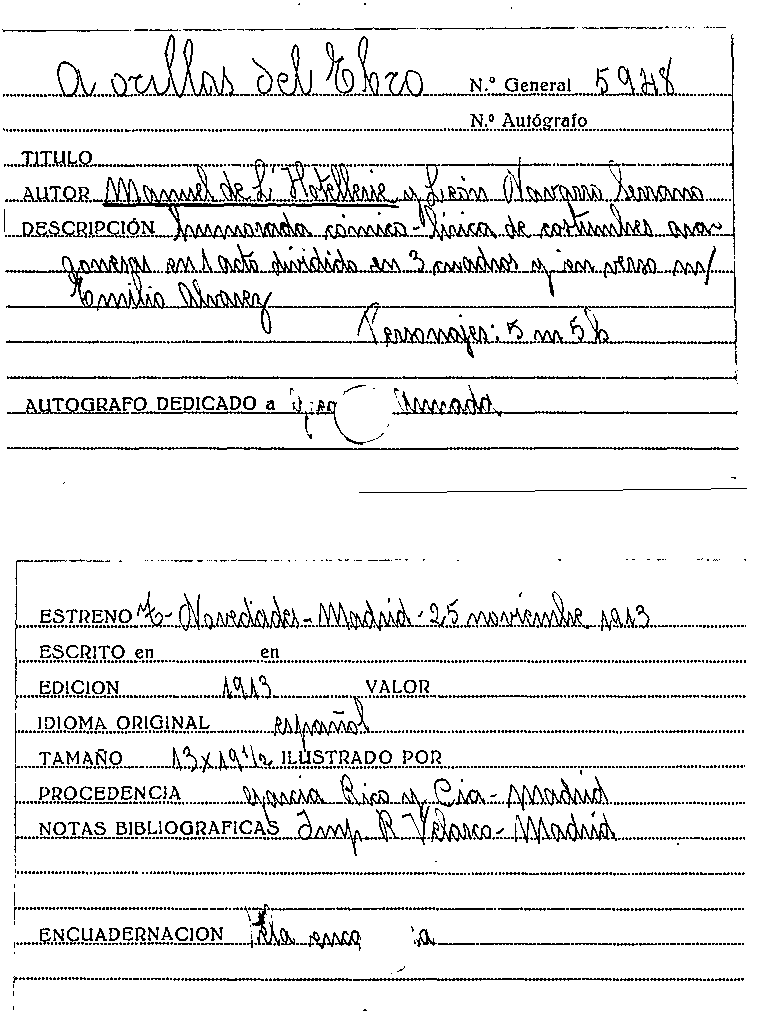 A orillas del Ebro N.º General 5948
N.º Autógrafo
TITULO
AUTOR Manuel de L'Hotellerie y León Navarro Serrano
DESCRIPCIÓN humorada cómico-lírica de costumbres ara-
gonesas en 1 acto dividido en 3 cuadros y en verso m/
Emilio Alvarez
Personajes: 5 m 5 h
AUTOGRAFO DEDICADO a Armada
ESTRENO T- Novedades - Madrid - 25 noviembre 1913
ESCRITO en en
EDICION 1913 VALOR
IDIOMA ORIGINAL español
TAMAÑO 13x19 1/2 ILUSTRADO POR
PROCEDENCIA García Rico y Cía - Madrid
NOTAS BIBLIOGRAFICAS Imp. R Velasco - Madrid
ENCUADERNACION Tela